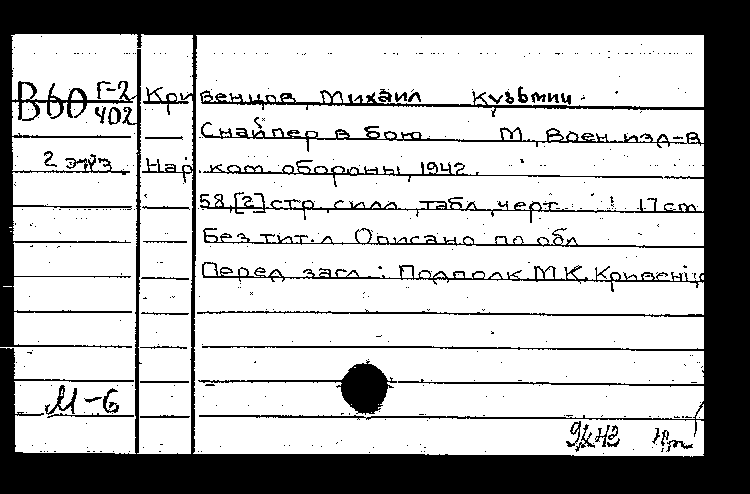 В60 Г-2 402
Кривенцов, Михаил Кузьмич.
Снайпер в бою. М., Воен. изд-в
2 экз. Нар. ком. обороны, 1942.
58,[2] стр., с илл., табл., черт. 17 cm
Без тит. л. Описано по обл
Перед загл.: Подполк. М.К. Кривенцо
М-6